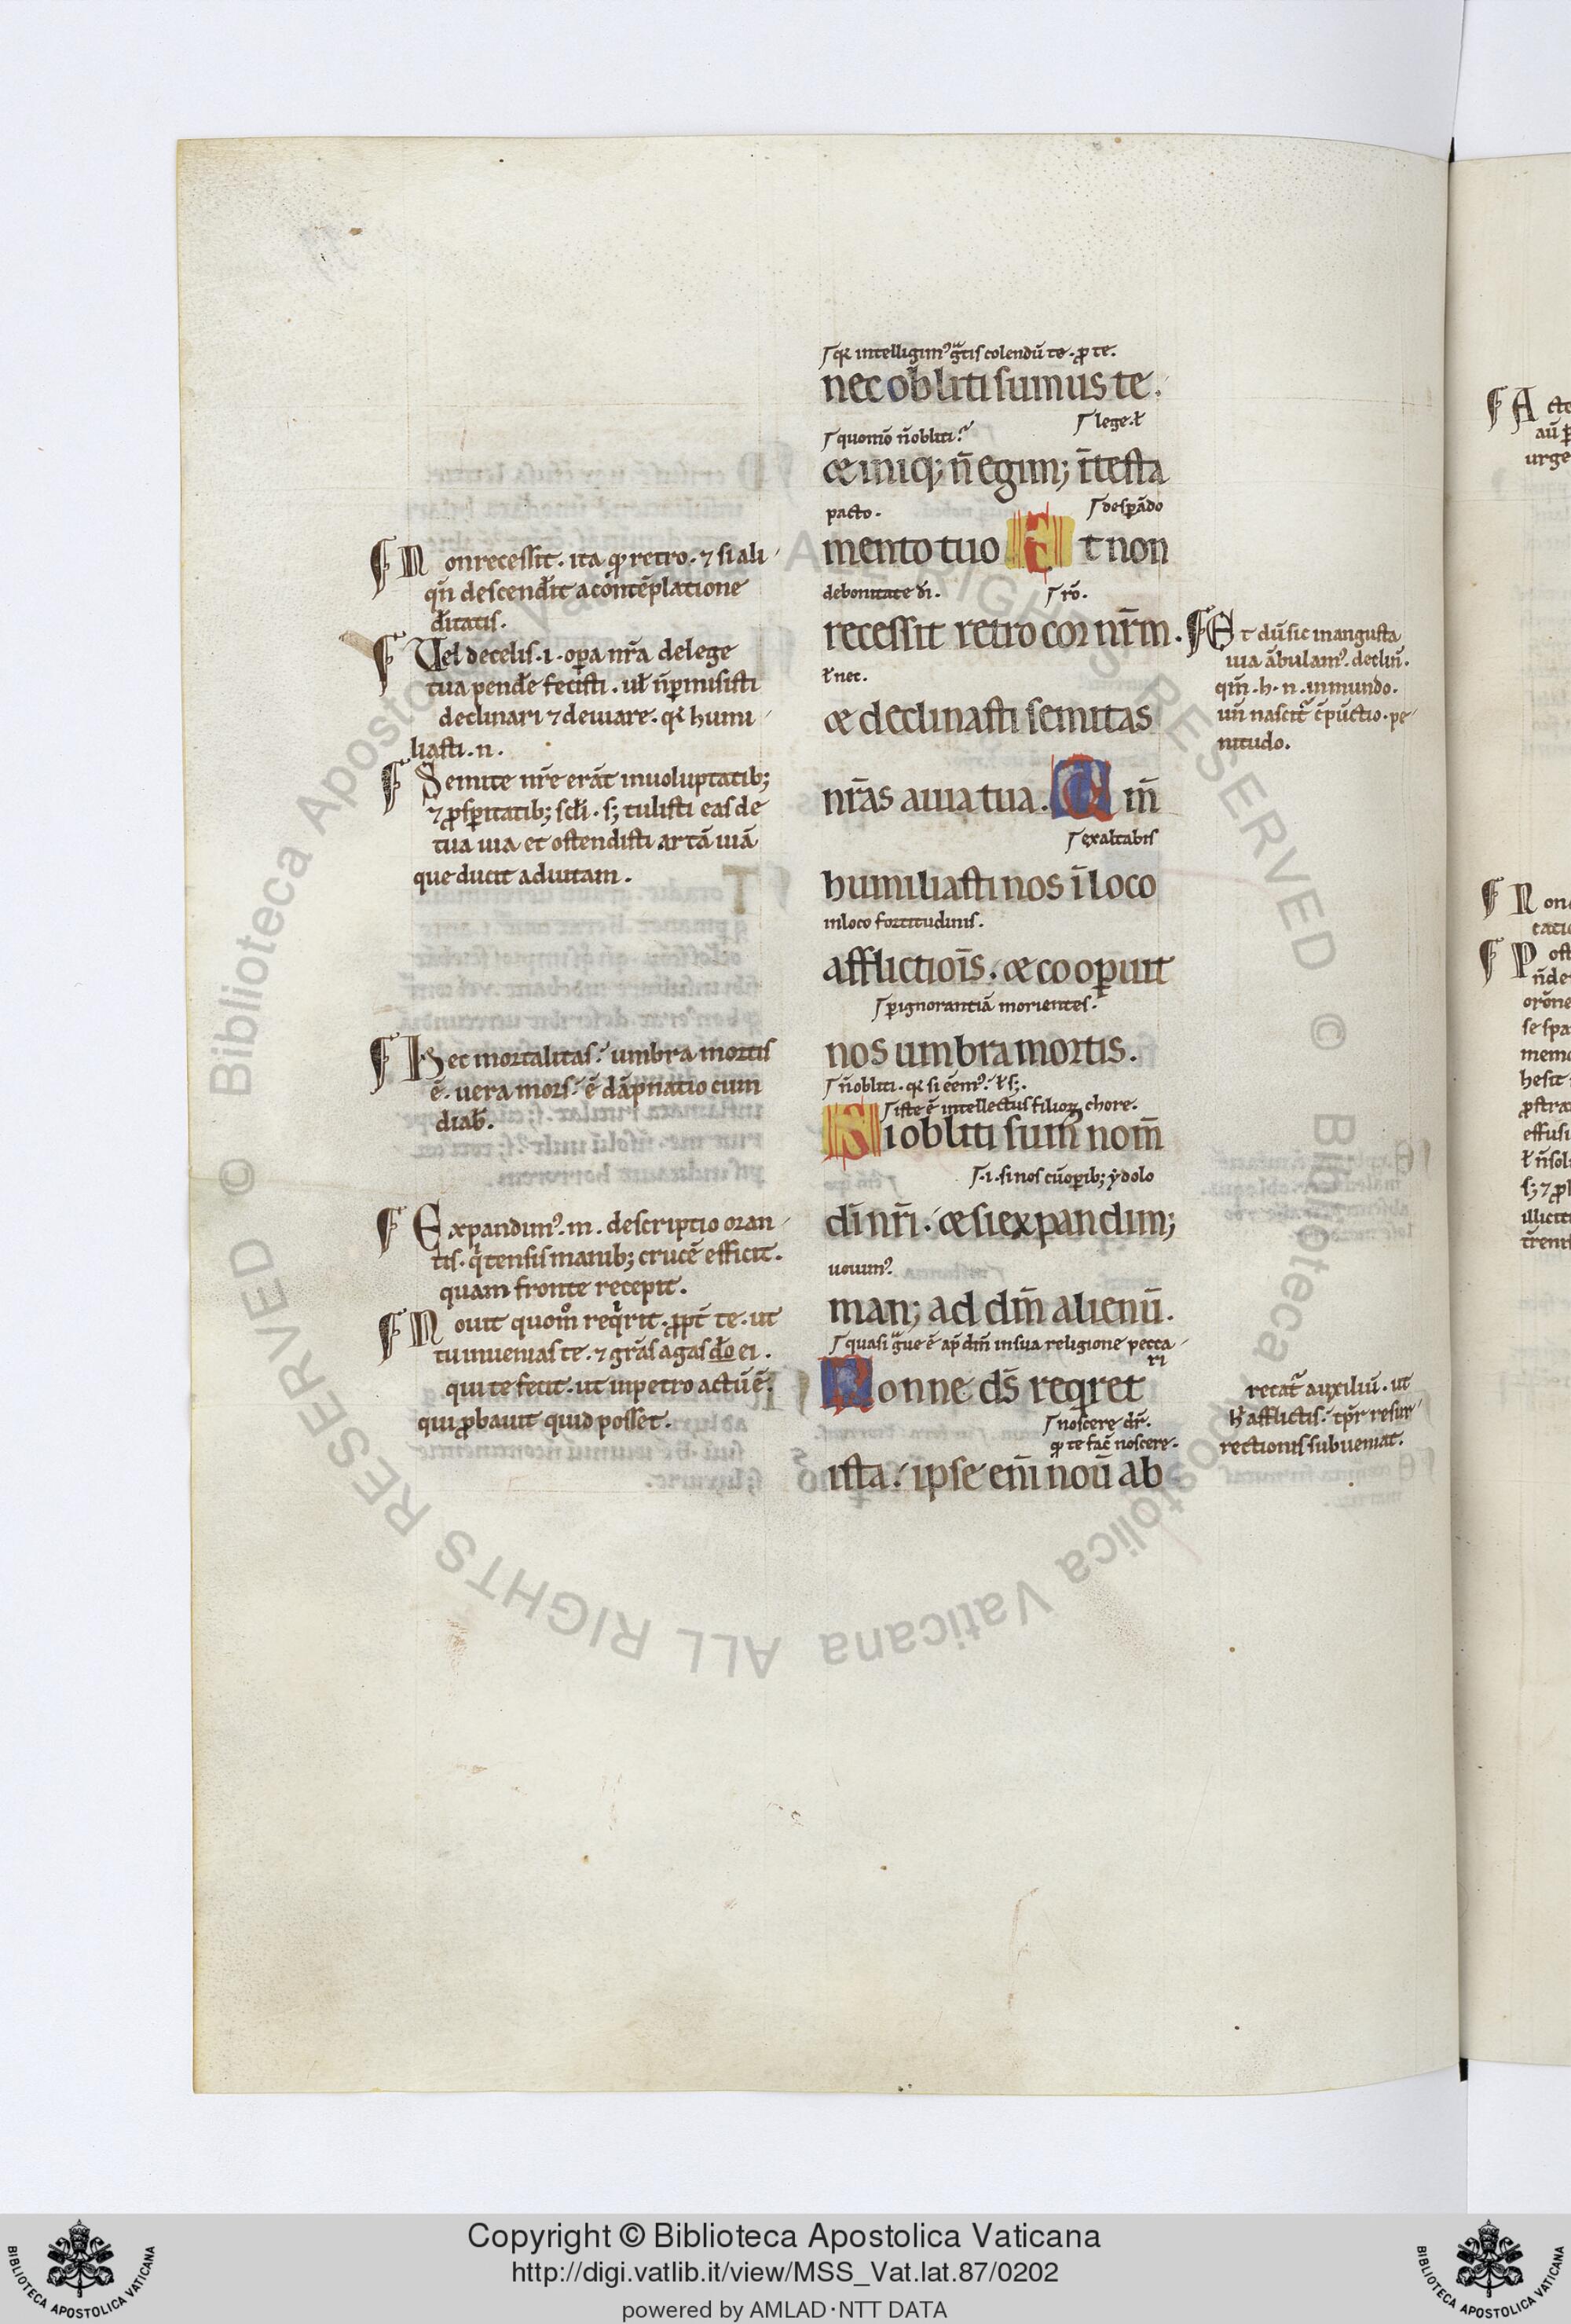 ⌜qꝛ intelligimꝰ gͣtis colendū te. ꝓ te.
nec obliti sumus te.
⌜lege. ł
⌜quomō n̄ obliti.
æ iniq; n̄ egim; ī testa
pacto.
⌜despādo
mento tuo Et non
de bonitate dī.
⌜rō.
recessit retro cor nr̄m.
ł nec.
æ declinasti semitas
nr̄as a uia tua. Qm̄
⌜exaltabis
humiliasti nos ī loco
in loco fortitudinis.
afflictiōis. æ coopꝑuit
⌜ꝑ ignorantiā morientes.
nos umbra mortis.
⌜n̄ obliti. qꝛ si eēmꝰ. ł s;.
⌜iste ē intellectus filioꝝ chore.
Si obliti sumꝰ nom̄
⌜.i. si nos cū oꝑib; ydolo
dī nr̄i. æ si expandim;
uouimꝰ.
man; ad dm̄ alienū.
⌜quasi gͣue ē ap̄ dm̄ in sua religione pecca
ri
Nonne ds̄ reqͥret
⌜noscere dr̄.
qꝫ te fac̄ noscere.
ista. ipse eni̅ nou̅ ab
Non recessit. ita qꝫ retro. ⁊ si ali
qn̄ descendit a contēplatione
ditatis.
Vel de celis .i. oꝑa nr̄a de lege
tua pendē fecisti. uł n̄ ꝑmisisti
declinari ⁊ deuiare. qꝛ humi
liasti .n.
Semite nr̄e erāt in uoluptatib;
⁊ ꝓsꝑitatib; scłi. s; tulisti eas de
tua uia et ostendisti artā uiā
que ducit ad uitam.
Hec mortalitas. umbra mortis
ē. uera mors. ē dāpnatio cum
diab̄.
Expandimꝰ .m. descriptio oran
tis. qͥ tensis manib; crucē efficit.
quam fronte recepit.
Nouit quom̊ reqͥrit. ꝓpt̄ te. ut
tu inuenias te. ⁊ grās agas do ei.
qui te fecit. ut in petro actū ē.
qui ꝓbauit quid posset.
Et dū sic in angusta
uia ābulamꝰ. declin̄.
qm̄ .h. n. in mundo.
un̄ nascit᷑ c̄punctio. pe
nitudo.
recat᷑ auxiliū. ut
h̄ afflictis. tp̄r resur
rectionis subueniat.
urge
Copyright © Biblioteca Apostolica Vaticana
http://digi.vatlib.it/view/MSS_Vat.lat.87/0202
powered by AMLAD·NTT DATA
BIBLIOTECA APOSTOLICA VATICANA
BIBLIOTECA APOSTOLICA VATICANA
© Biblioteca Apostolica Vaticana ALL RIGHTS RESERVED © Biblioteca Apostolica Vaticana ALL RIGHTS RESERVED